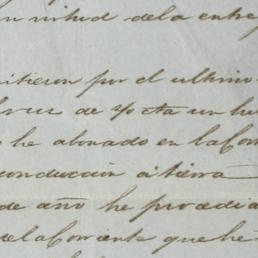 n virtud dela entre
itieron por el ultimo
de un
he abonado en la Cor
conducción á tierra
de año he procedi
de la Corriente que he